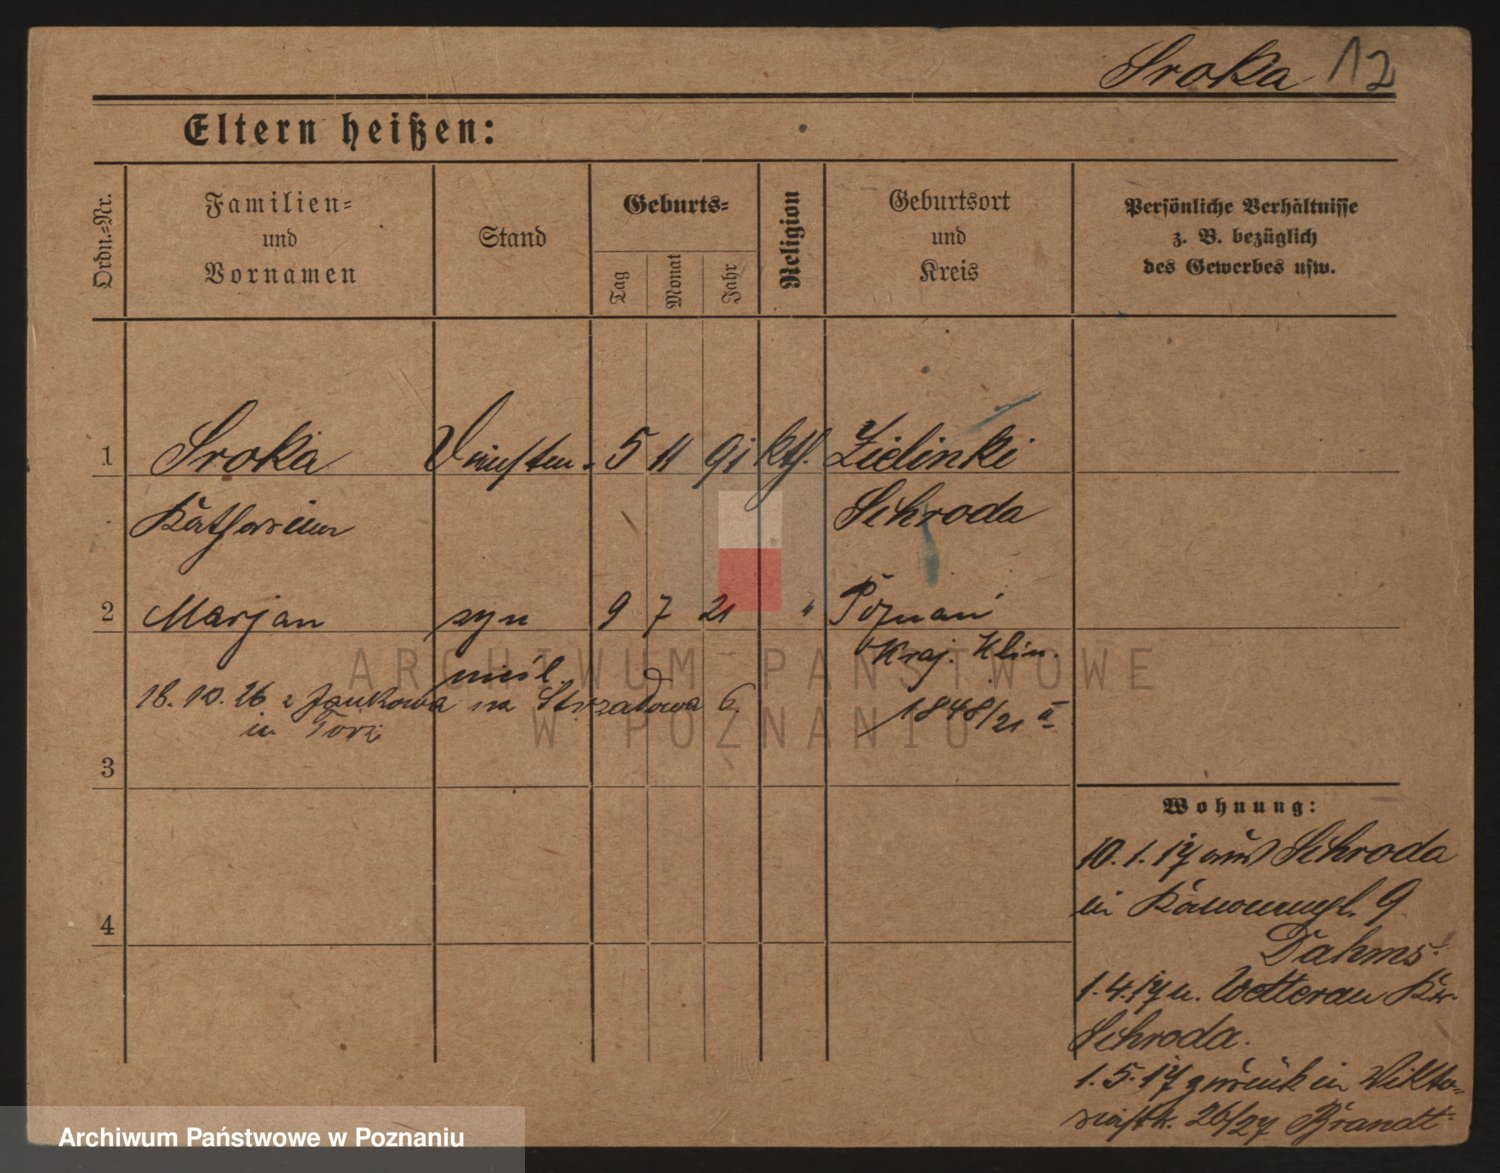 Sroka 12
Eltern heißen:
Ordn.-Nr.
Familien-
und
Vornamen
Stand
Geburts-
Tag
Monat
Jahr
Religion
Geburtsort
und
Kreis
Persönliche Verhältnisse
z. B. bezüglich
des Gewerbes usw.
1 Sroka 5 11 91 kth. Zielinki
Schroda
2 Marjan syn 9 7 21 " Poznań
Kraj. Klin.
nieśl.
18. 10. 26 z na 6
1848/21
in
3
Wohnung:
10. 1. 17 aus Schroda
in 9
Dahms.
4
1. 4. 17 n. Wetterau Kr.
Schroda.
1. 5. 17 zurück in Vikto-
riastr. 26/27 Brandt
ARCHIWUM PAŃSTWOWE
W POZNANIU
Archiwum Państwowe w Poznaniu